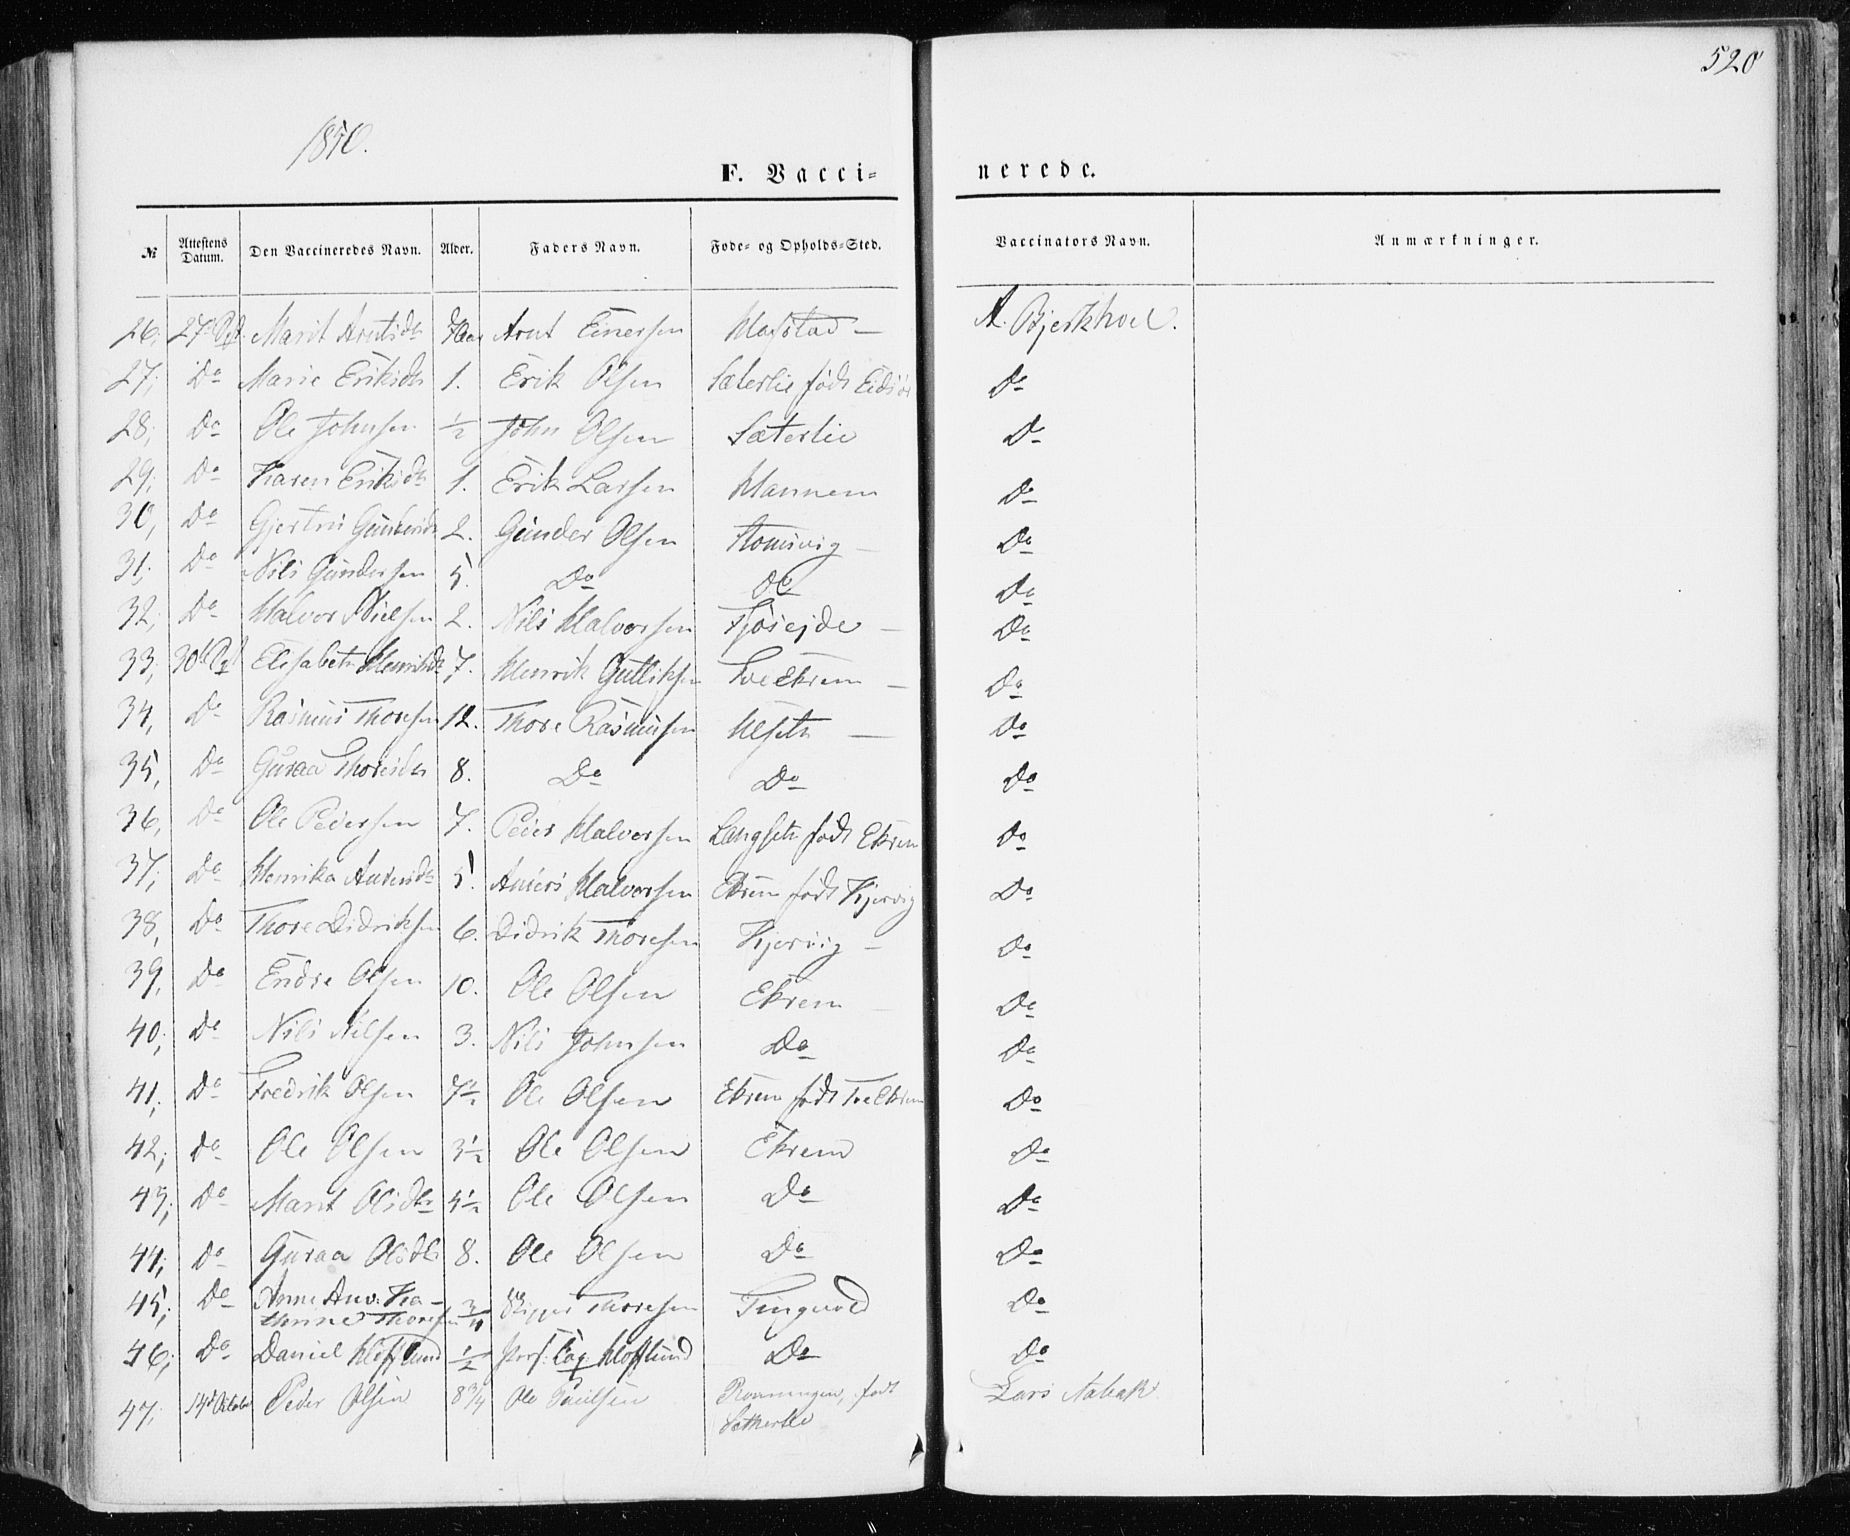 520
1850.
F. Vacci=
nerede.
№ Attestens Datum. Den Vaccineredes Navn. Alder. Faders Navn. Føde= og Opholds=Sted. Vaccinators Navn. Anmærkninger.
26; Marit Arntsdtr Arnt Einersen Hafstad — A. Bjerkhoel.
27; Do Marie Eriksdtr 1. Erik Olsen Sæterlie født Do
28; Do Ole Johnsen ½ John Olsen Sæterlie Do
29; Do Karen Eriksdtr 1. Erik Larsen Hannem Do
30, Do Gundersdtr 2. Gunder Olsen — Do
31; Do Nils Gundersen 5. Do Do Do
32; Do Halvor Nielsen 2. Nils Halvorsen — Do
33; Elisabeth Henriksdtr 7. Henrik Gulliksen — Do
34, Do Rasmus Thoresen 12. Thore Rasmusen Ulseth — Do
35, Do Guraa Thoresdtr 8. Do Do Do
36, Do Ole Pedersen 7. Peder Halvorsen Langseth født Ekrem Do
37; Do Henrika Andersdtr 5. Anders Halvorsen Ekrem født Kjørvig Do
38, Do Thore Didriksen 6. Didrik Thoresen Kjørvig — Do
39, Do Endre Olsen 10. Ole Olsen Ekrem — Do
40; Do Nils Nilsen 3. Nils Johnsen Do Do
41; Do Fredrik Olsen 7½ Ole Olsen Ekrem født Do
42; Do Ole Olsen 3½ Ole Olsen Ekrem Do
43; Do Marit Olsdtr 5½ Ole Olsen Do Do
44; Do Guraa Olsdtr 8. Ole Olsen Do Do
45; Do Anne Ka-
thrine Thoresen ¾ Thoresen Tingvold Do
46; Do Daniel Hofflund ½ Hofflund Do Do
47; Peder Olsen 8¾ Ole Rønningen, født
Sætherlie Lars Aabak